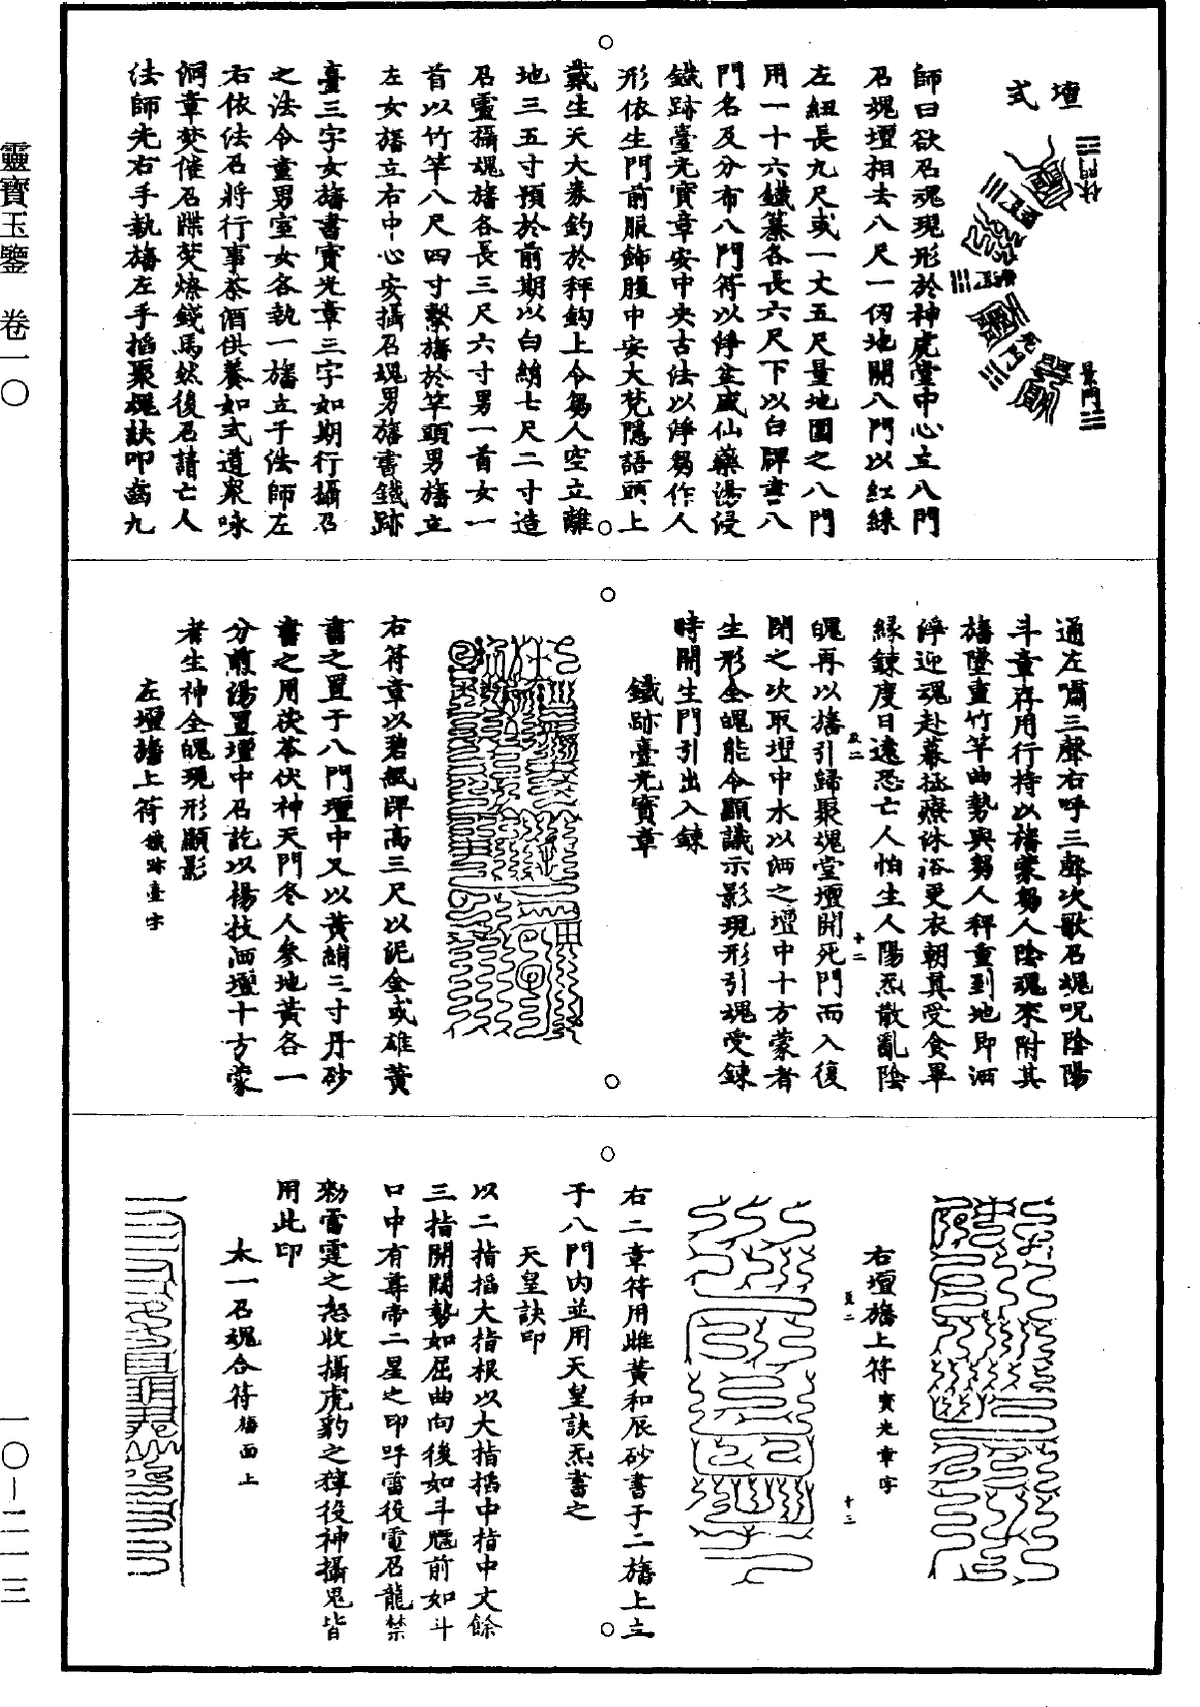 靈寶玉鑒 卷一〇
一〇－二一三
壇式
休門
景門
師曰欲召魂現形於神虎堂中心立八門
召魂壇相去八尺一仞地開八門以紅綵
左紐長九尺或一丈五尺量地圍之八門
用一十六鐵纂各長六尺下以白牌書八
門名及分布八門符以淨盆盛仙藥湯浸
鐵跡臺光寶章安中央古法以淨芻作人
形依生門前服飾腹中安大梵隱語頭上
戴生天大券鈎於秤鈎上令芻人空立離
地三五寸預於前期以白絹七尺二寸造
召靈攝魂旛各長三尺六寸男一首女一
首以竹竿八尺四寸繫旛於竿頭男旛立
左女旛立右中心安攝召魂男旛書鐵跡
臺三字女旛書寶光章三字如期行攝召
之法令童男室女各執一旛立于法師左
右依法召將行事茶酒供養如式道眾咏
洞章焚催召牒焚燎錢馬然後召請亡人
法師先右手執旛左手搯聚魂訣叩齒九
通左嘯三聲右呼三聲次歌召魂呪陰陽
斗章存用行持以旛蒙芻人陰魂來附其
旛墜重竹竿曲勢與芻人秤重到地即洒
淨迎魂赴幕拯療沐浴更衣朝真受食畢
緣鍊度日遠恐亡人怕生人陽炁散亂陰
魄再以旛引歸聚魂堂壇開死門而入復
閉之次取壇中水以洒之壇中十方蒙者
生形全魄能令顯議示影現形引魂受鍊
時開生門引出入鍊
鐵跡臺光寶章
右符章以碧紙牌高三尺以泥金或雄黃
書之置于八門壇中又以黃絹三寸丹砂
書之用茯苓伏神天門冬人參地黃各一
分煎湯置壇中召訖以楊枝洒壇十方蒙
者生神全魄現形顯影
左壇旛上符 鐵跡臺字
右壇旛上符 寶光章字
右二章符用雌黃和辰砂書于二旛上立
于八門內並用天皇訣炁書之
天皇訣印
以二指搯大指根以大指搯中指中文餘
三指開闊勢如屈曲向後如斗魁前如斗
口中有尊帝二星之印呼雷役電召龍禁
勑雷霆之怒收攝虎豹之獐役神攝鬼皆
用此印
太一召魂合符 旛面上